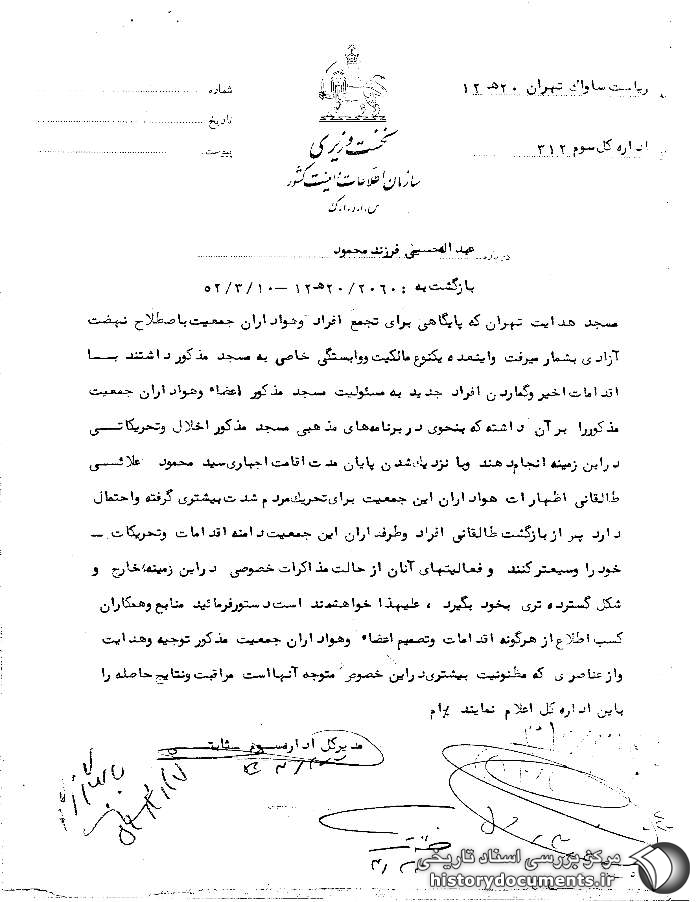 ریاست ساواک تهران ۲۰هـ ۱۲
شماره
اداره کل سوم ۳۱۲
تاریخ
پیوست
نخست وزیری
سازمان اطلاعات و امنیت کشور
س.ا.و.ا.ک
درباره عبدالحسینی فرزند محمود
بازگشت به : ۲۰۶۰/۲۰هـ۱۲ – ۵۲/۳/۱۰
مسجد هدایت تهران که پایگاهی برای تجمع افراد وهواداران جمعیت باصطلاح نهضت
آزادی بشمار میرفت واینعده یکنوع مالکیت ووابستگی خاصی به مسجد مذکور داشتند بـا
اقدامات اخیر وگماردن افراد جدید به مسئولیت مسجد مذکور اعضاء وهواداران جمعیت
مذکوررا برآن داشته که بنحوی دربرنامه‌های مذهبی مسجد مذکور اخلال وتحریکاتـی
دراین زمینه انجام دهند وبا نزدیک شدن پایان مدت اقامت اجباری سید محمود علائـی
طالقانی اظهارات هواداران این جمعیت برای تحریک مردم شدت بیشتری گرفته واحتمال
دارد پس از بازگشت طالقانی افراد وطرفداران این جمعیت دامنه اقدامات وتحریکات ـ
خودرا وسیعترکنند و فعالیتهای آنان از حالت مذاکرات خصوصی دراین زمینه خارج و
شکل گسترده تری بخود بگیرد ، علیهذا خواهشمند است دستورفرمائید منابع وهمکاران
کسب اطلاع از هرگونه اقدامات وتصمیم اعضاء وهواداران جمعیت مذکور توجیه وهدایت
وازعناصری که مظنونیت بیشتری دراین خصوص متوجه آنهااست مراقبت ونتایج حاصله را
باین اداره کل اعلام نمایند
مدیرکل اداره سوم ثابتی
مرکز بررسی اسناد تاریخی
historydocuments.ir